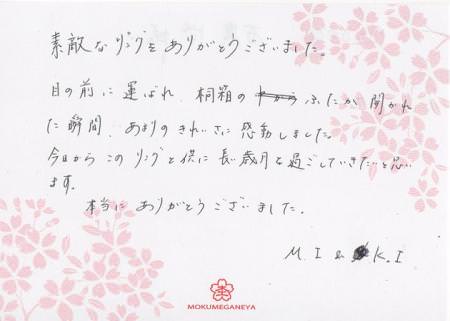 素敵なリングをありがとうございました。
目の前に運ばれ、桐箱のふたが開かれ
た瞬間、あまりのきれいさに感動しました。
今日からこのリングと供に長い歳月を過ごしていきたいと思い
ます。
本当にありがとうございました。
M.I & K.I
MOKUMEGANEYA